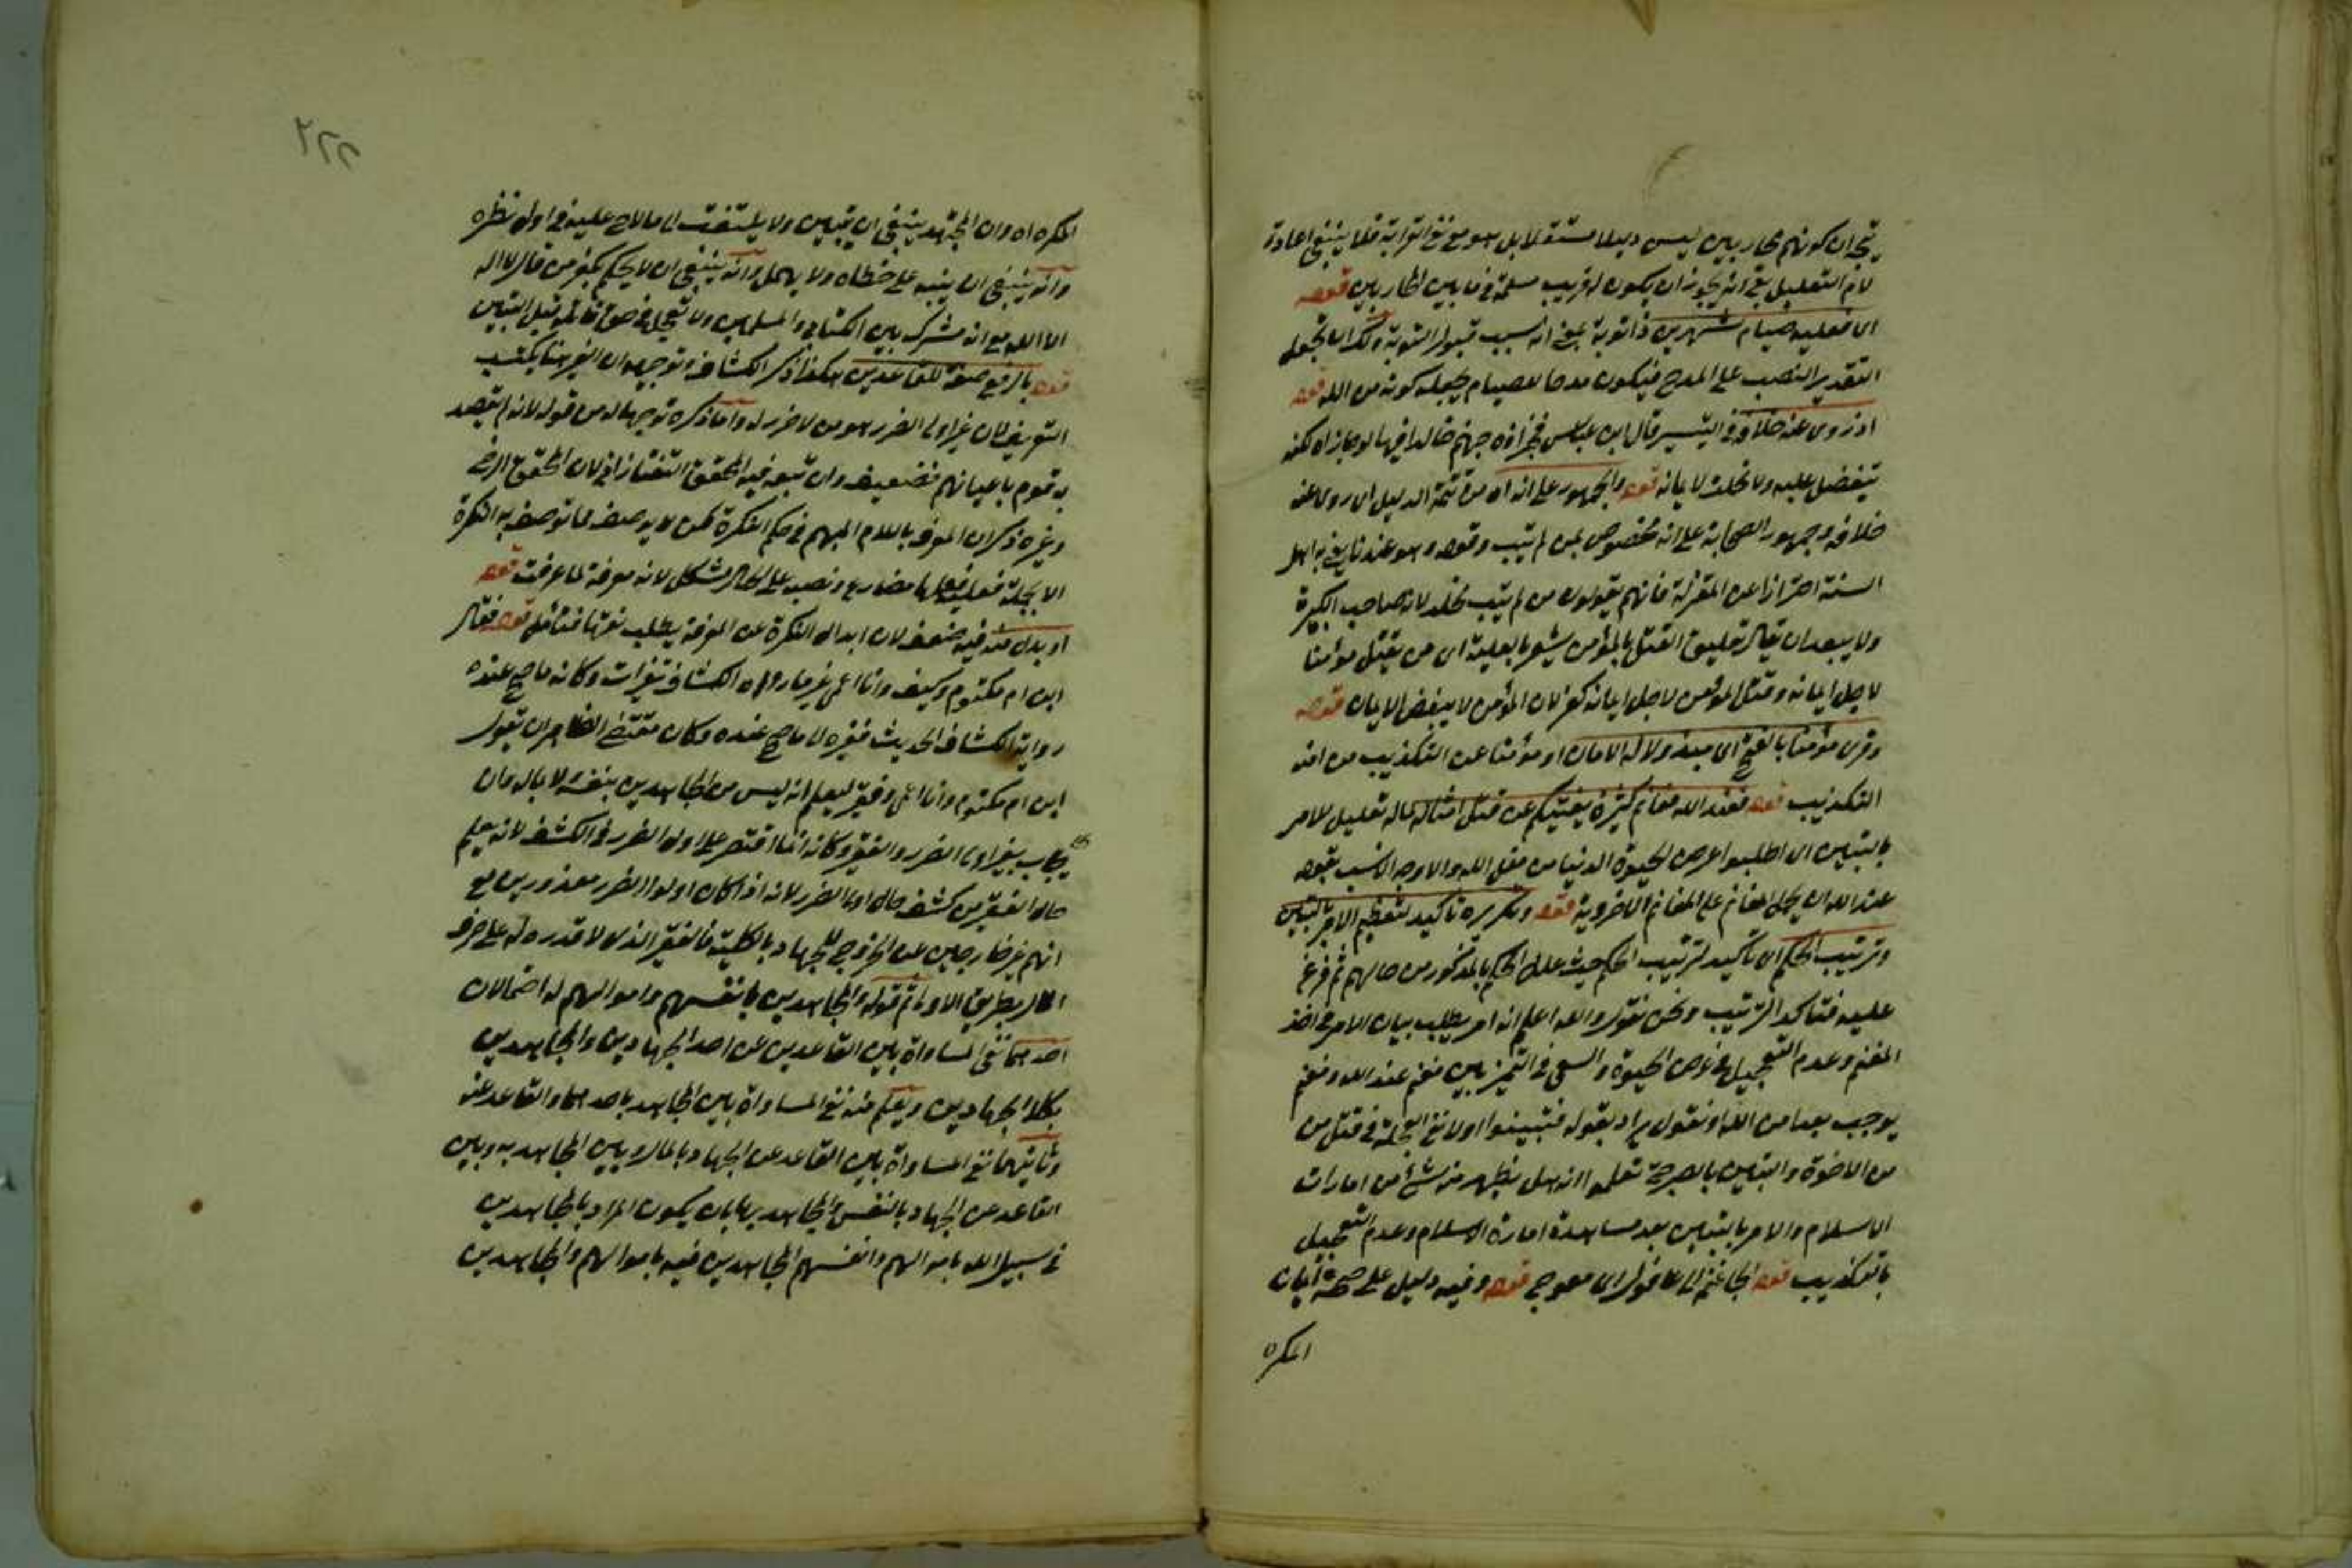 يتجه ان كونهم محاربين ليس دليلا مستقلا بل هو مع نفي القرابة فلا ينبغي اعادة
لام التعليل بقي انه يجوز ان يكون له قريب مسلم في ما بين المحاربين قوله
اى فعليه صيام شهرين ذا توبة بمعنى انه سبب قبول التوبة ولك ان تجعل
التقدير النصب على المدح فيكون مدحا للصيام بجعله كونه من الله قوله
اذ روى عنه خلافه في التيسير قال ابن عباس فجزاؤه جهنم خالدا فيها لو جازاه لكنه
يتفضل عليه ولا يخلده لايمانه قوله والجمهور على انه اه من تتمة الدليل اى روى عنه
خلافه وجمهور الصحابة على انه مخصوص بمن لم يتب وقوله وهو عندنا يعنى به اهل
السنة احترازا عن المعتزلة فانهم يقولون من لم يتب يخلد لانه صاحب الكبيرة
ولا يبعد ان يقال تعليق القتل بالمؤمن يشعر بالعلية اى من يقتل مؤمنا
لاجل ايمانه وقتل المؤمن لاجل ايمانه كفر لان المؤمن لا يبغض الايمان قوله
وقرئ مؤمنا بالفتح اى مبذولا له الامان او مؤمنا عن التكذيب من امنه
التكذيب قوله فعند الله مغانم كثيرة يغنيكم عن قتل امثاله لماله تعليل للامر
بالتبين اى اطلبوا عرض الحيوة الدنيا من فضل الله والاوجه الانسب بقوله
عند الله ان يحمل المغانم على المغانم الاخروية قوله وتكريره تأكيد لتعظيم الامر بالتبين
وترتيب الحكم اى تأكيد لترتيب الحكم حيث علل الحكم بالمذكور من حالهم ثم فرغ
عليه فتأكد الترتيب ونحن نقول والله اعلم انه امر يطلب بيان الامر فى اخذ
المغنم وعدم التعجيل فى عرض الحيوة والسعى فى التمييز بين مغنم عند الله ومغنم
يوجب بعدا من الله او نقول يراد بقوله فتبينوا اولا نفى العجلة في قتل من
من الاخوة والتبين بالصرحة تعلموا انه هل يظهر منه شئ من امارات
الاسلام والامر بالتبين بعد مشاهدة امارة الاسلام وعدم التعجيل
بالتكذيب قوله الجأ غنمه الى عاقول اى معوج قوله وفيه دليل على صحة ايمان
المكره
المكره اه وان المجتهد ينبغى ان يتبين ولا يلتفت الى ما لاح عليه فى اول نظره
وانه ينبغى ان ينبه على خطاه ولا يهمل وانه ينبغى ان لا يحكم بكفر من قال لا اله
الا الله مع انه مشترك بين الكتابي والمسلمين ولا تعجل فى حق قائله قبل التبين
قوله بالرفع صفة للقاعدين هكذا ذكر الكشاف وتوجيهه ان الغير هنا يكتسب
التعريف لان غير اولى الضرر هو من لا ضرر له واما ذكره توجيها له من قوله لانه لم يقصد
به قوم باعيانهم فضعيف وان تبعه فيه المحقق التفتازانى لان المحقق الرضى
وغيره ذكر ان المعرف باللام المبهم فى حكم النكرة لكن لا يوصف بما توصف به النكرة
الا بجملة فعلية فعلها مضارع ونصبه على الحال مشكل لانه معرفة لما عرفت قوله
او بدل منه فيه ضعف لان ابدال النكرة عن المعرفة يطلب نعتها فتأمل قوله فقال
ابن ام مكتوم وكيف وانا اعمى غير ما رواه الكشاف تغييرات وكانه ما صح عنده
رواية الكشاف الحديث فغيره لما صح عنده وكان مقتضى الظاهر ان يقول
ابن ام مكتوم وانا اعمى وفقير ليعلم انه ليس من المجاهدين بنفسه لا بماله وان
يجاب بغير اولى الضرر والفقير وكانه انما اقتصر على اولى الضرر فى الكشف لانه يعلم
حال الفقير من كشف حال اولى الضرر لانه اذا كان اولوا الضرر معذورين مع
انهم غير خارجين عن الخروج للجهاد بالكلية فالفقير الذى لا قدره له على صرف
المال بطريق الاولى ثم قوله والمجاهدين بانفسهم واموالهم له احتمالان
احدهما نفى المساواة بين القاعدين عن احد الجهادين والمجاهدين
بكلا الجهادين ويعلم منه نفى المساواة بين المجاهد باحدهما والقاعد عنه
وثانيهما نفى المساواة بين القاعد عن الجهاد بالمال وبين المجاهد به وبين
القاعد عن الجهاد بالنفس والمجاهد بها بان يكون المراد بالمجاهدين
فى سبيل الله باموالهم وانفسهم المجاهدين فيه باموالهم والمجاهدين